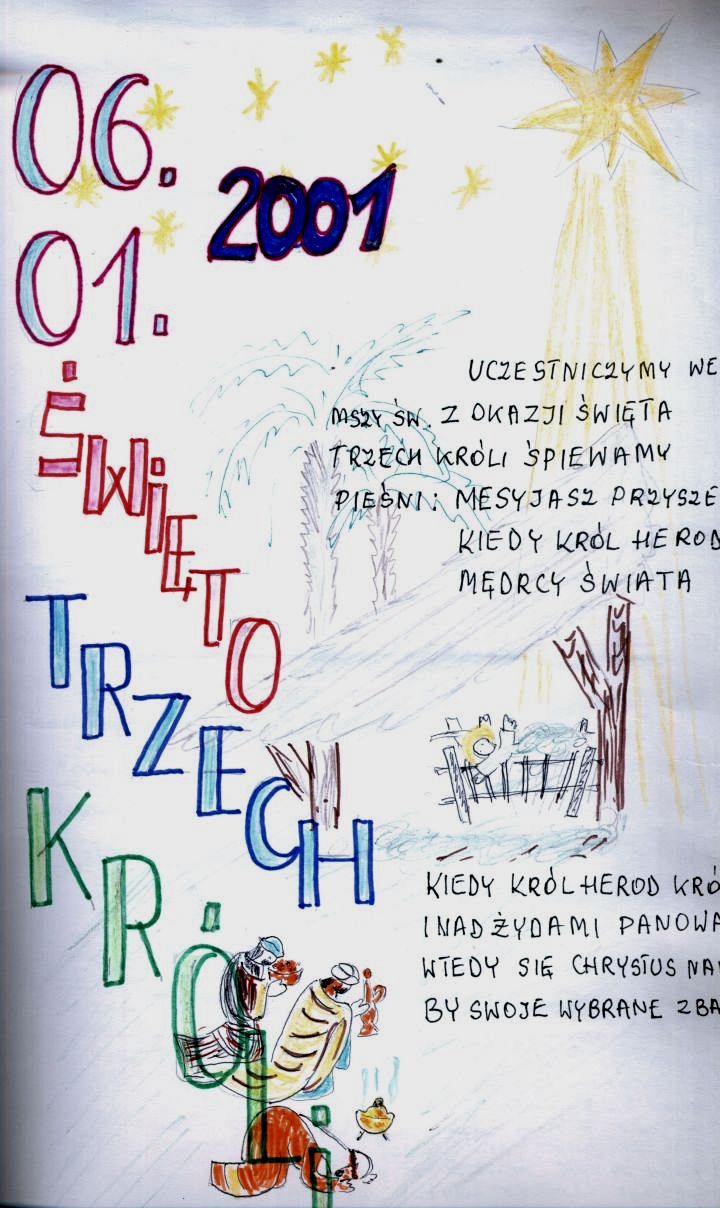 06.
01.
2001
ŚWIĘTO
TRZECH
KRÓLI
UCZESTNICZYMY WE
MSZY ŚW. Z OKAZJI ŚWIĘTA
TRZECH KRÓLI ŚPIEWAMY
PIEŚNI: MESYJASZ PRZYSZE
KIEDY KRÓL HEROD
MĘDRCY ŚWIATA
KIEDY KRÓL HEROD KRÓ
I NAD ŻYDAMI PANOWA
WTEDY SIĘ CHRYSTUS NA
BY SWOJE WYBRANE ZBA